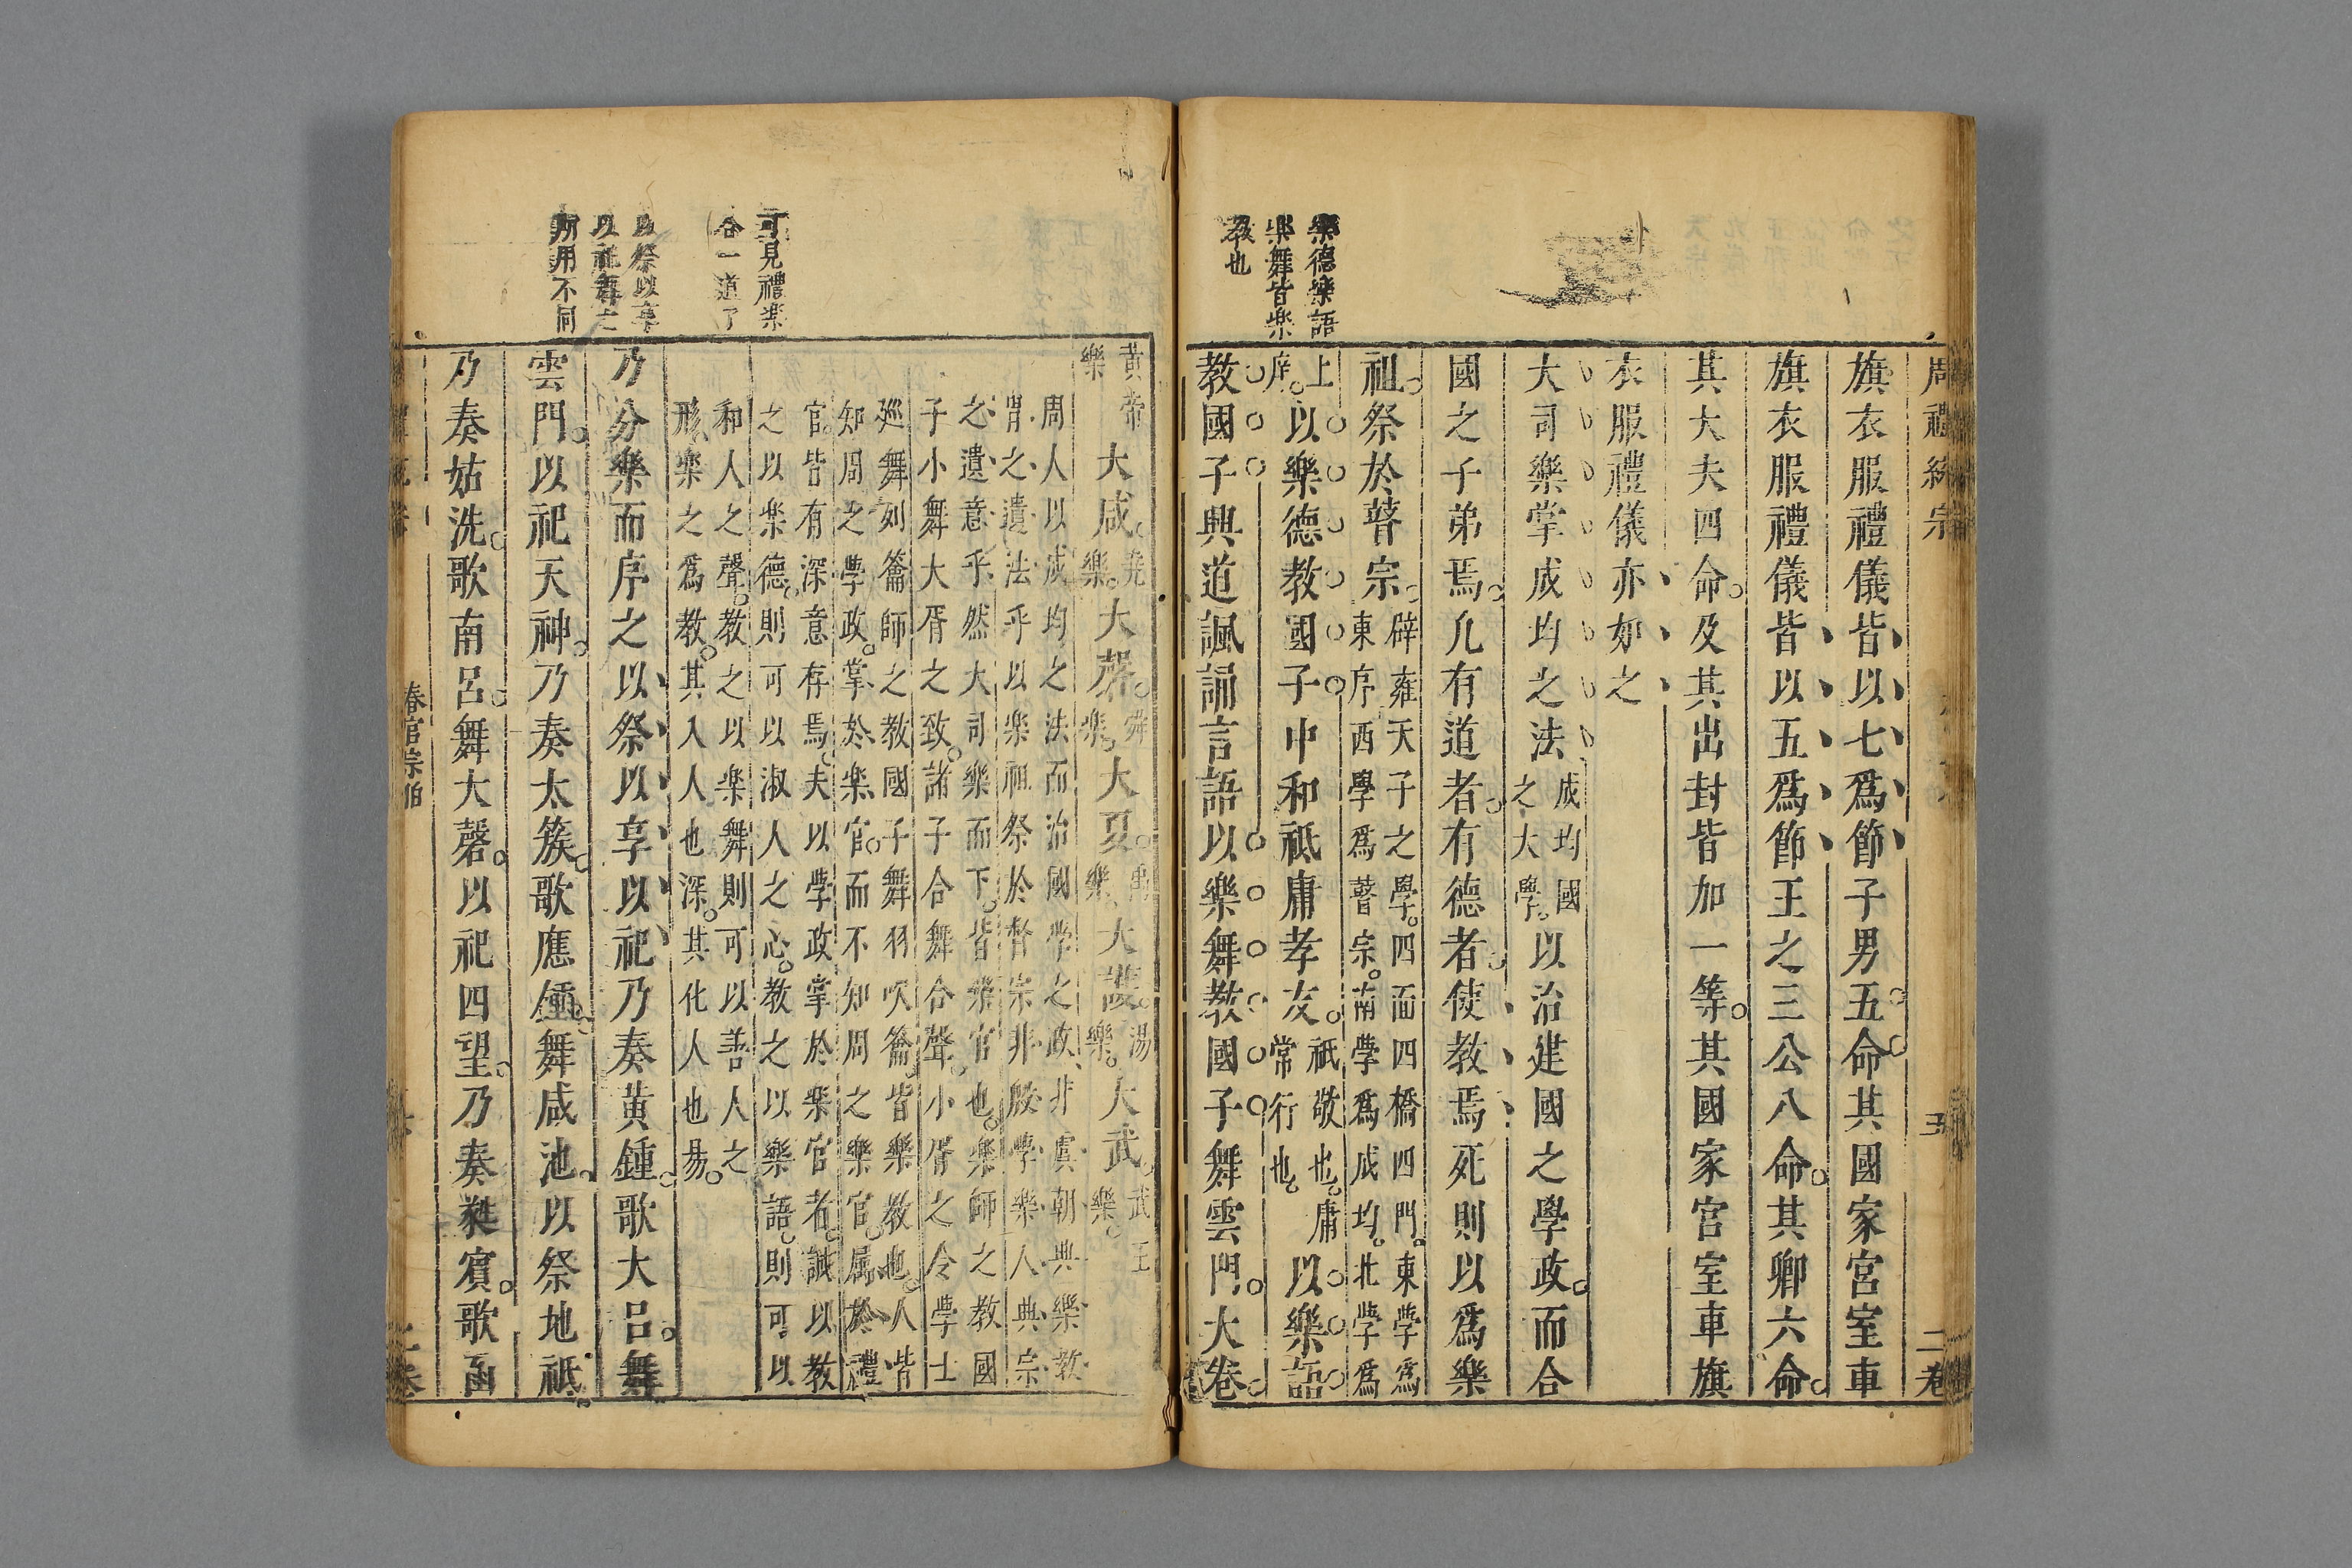 周禮
五
二卷
旗衣服禮儀皆以七爲節子男五命其國家宮室車
旗衣服禮儀皆以五爲節王之三公八命其卿六命
其大夫四命及其出封皆加一等其國家宮室車旗
衣服禮儀亦如之
大司樂掌成均之法
成均國
之大學
以治建國之學政而合
國之子弟焉凡有道者有德者使教焉死則以爲樂
祖祭於瞽宗
辟雍天子之學四面四橋四門東學爲
東序西學爲瞽宗南學爲成均北學爲
上
庠
以樂德教國子中和祗庸孝友
祇敬也庸
常行也
以樂語
教國子興道諷誦言語以樂舞教國子舞雲門大卷
樂德樂語
樂舞皆樂
教也
黃帝
樂
大咸
堯
樂
大磬
舜
樂
大夏
禹
樂
大濩
湯
樂
大武
武王
樂
周人以成均之法而治國學之政非虞朝典樂教
胄之遺法乎以楽祖祭於瞽宗非殷學樂人典宗
之遺意乎然大司樂而下皆樂官也樂師之教國
子小舞大胥之致諸子合舞合聲小胥之令學士
巡舞列籥師之教國子舞羽吹籥皆樂教也人皆
知周之學政掌於楽官而不知周之樂官属於禮
官皆有深意存焉夫以學政掌於楽官者誠以教
之以楽德則可以淑人之心教之以樂語則可以
和人之聲教之以楽舞則可以善人之
形楽之爲教其入人也深其化人也易
乃分樂而序之以祭以享以祀乃奏黃鍾歌大呂舞
雲門以祀天神乃奏太簇歌應鍾舞咸池以祭地祗
乃奏姑洗歌南呂舞大磬以祀四望乃奏蕤賓歌函
可見禮楽
合一道了
以祭以享
以祀舞之
所用不同
春官宗伯